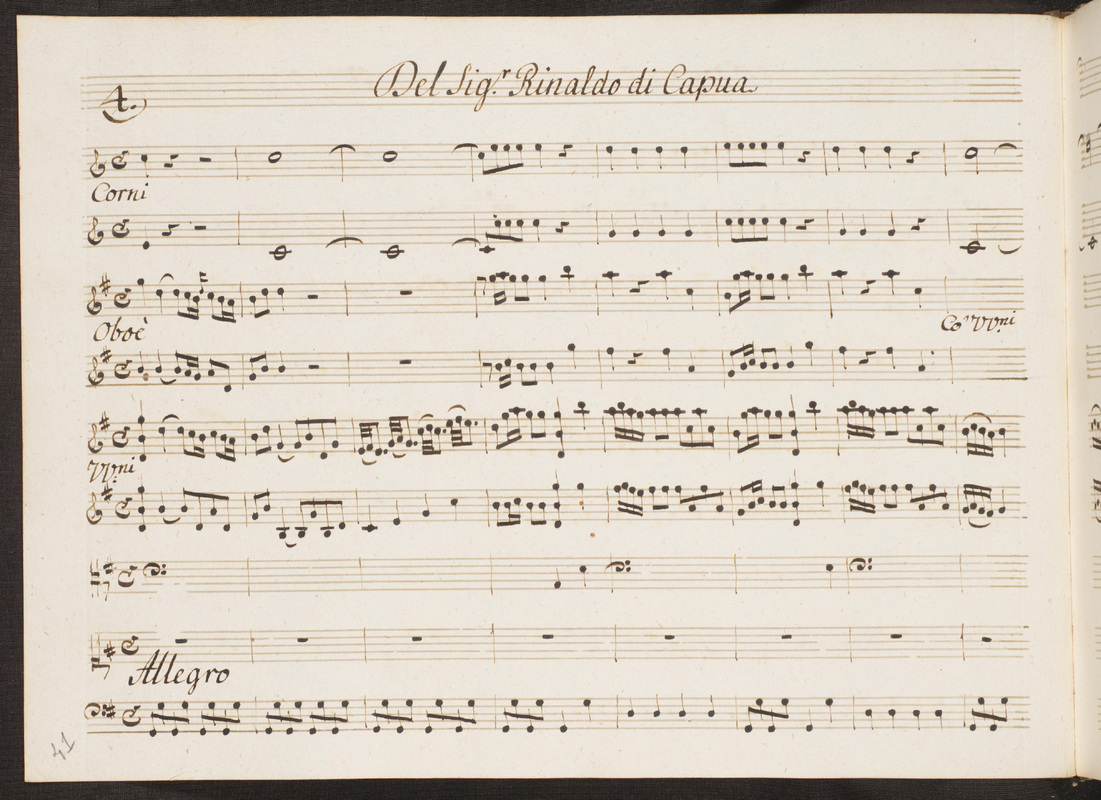 Del Sig.r Rinaldo di Capua
4.
Corni
Oboè
Co' VVni
VVni
Allegro
41